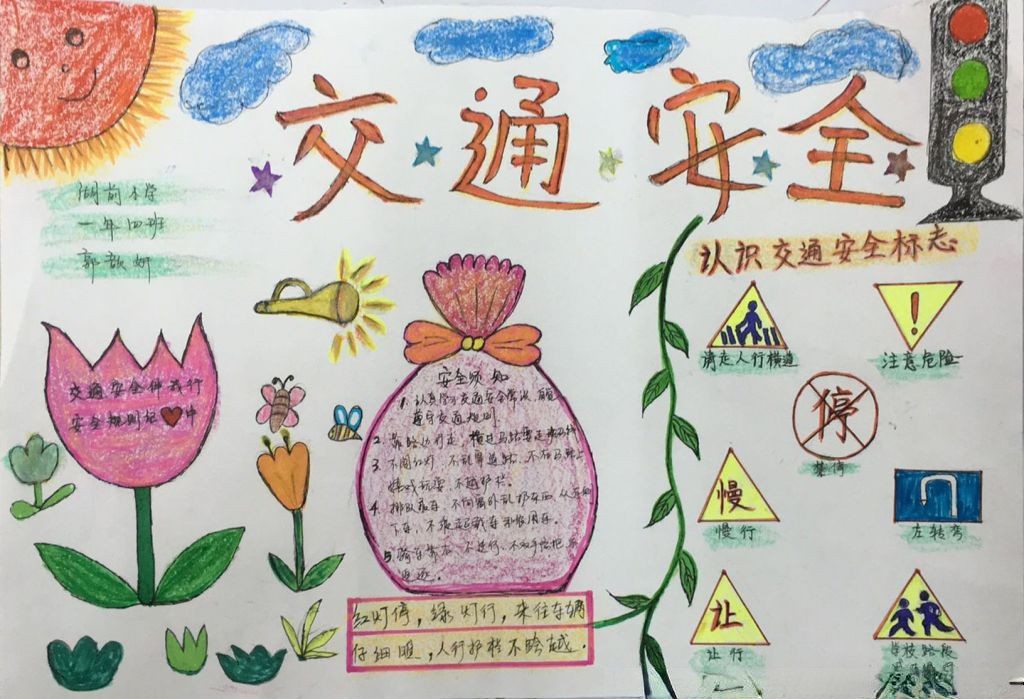 交通安全
湖前小学
一年四班
郭
交通安全伴我行
安全规则记❤中
安全须知
1. 认真学习交通安全常识，自觉
遵守交通规则。
2. 靠路边行走，横过马路要走斑马线
3. 不闯红灯，不乱穿马路，不在马路上
嬉戏玩耍，不逾护栏。
4. 排队乘车，不向窗外乱扔东西
下车，不乘
5. 骑自
红灯停，绿灯行，来往车辆
仔细瞧，人行护栏不跨越。
认识交通安全标志
请走人行横道
!
注意危险
停
禁停
慢
慢行
左转弯
让
让行
学校路段